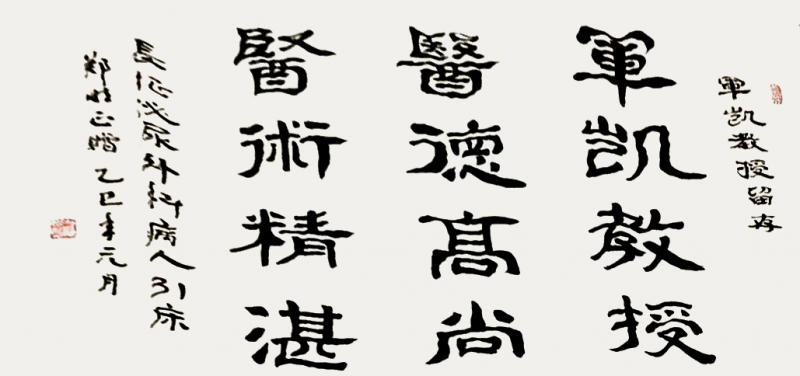 軍凯教授留存
軍凯教授
醫德髙尚
醫術精湛
長征泌尿外科病人31床
郑正贈 乙巳年元月